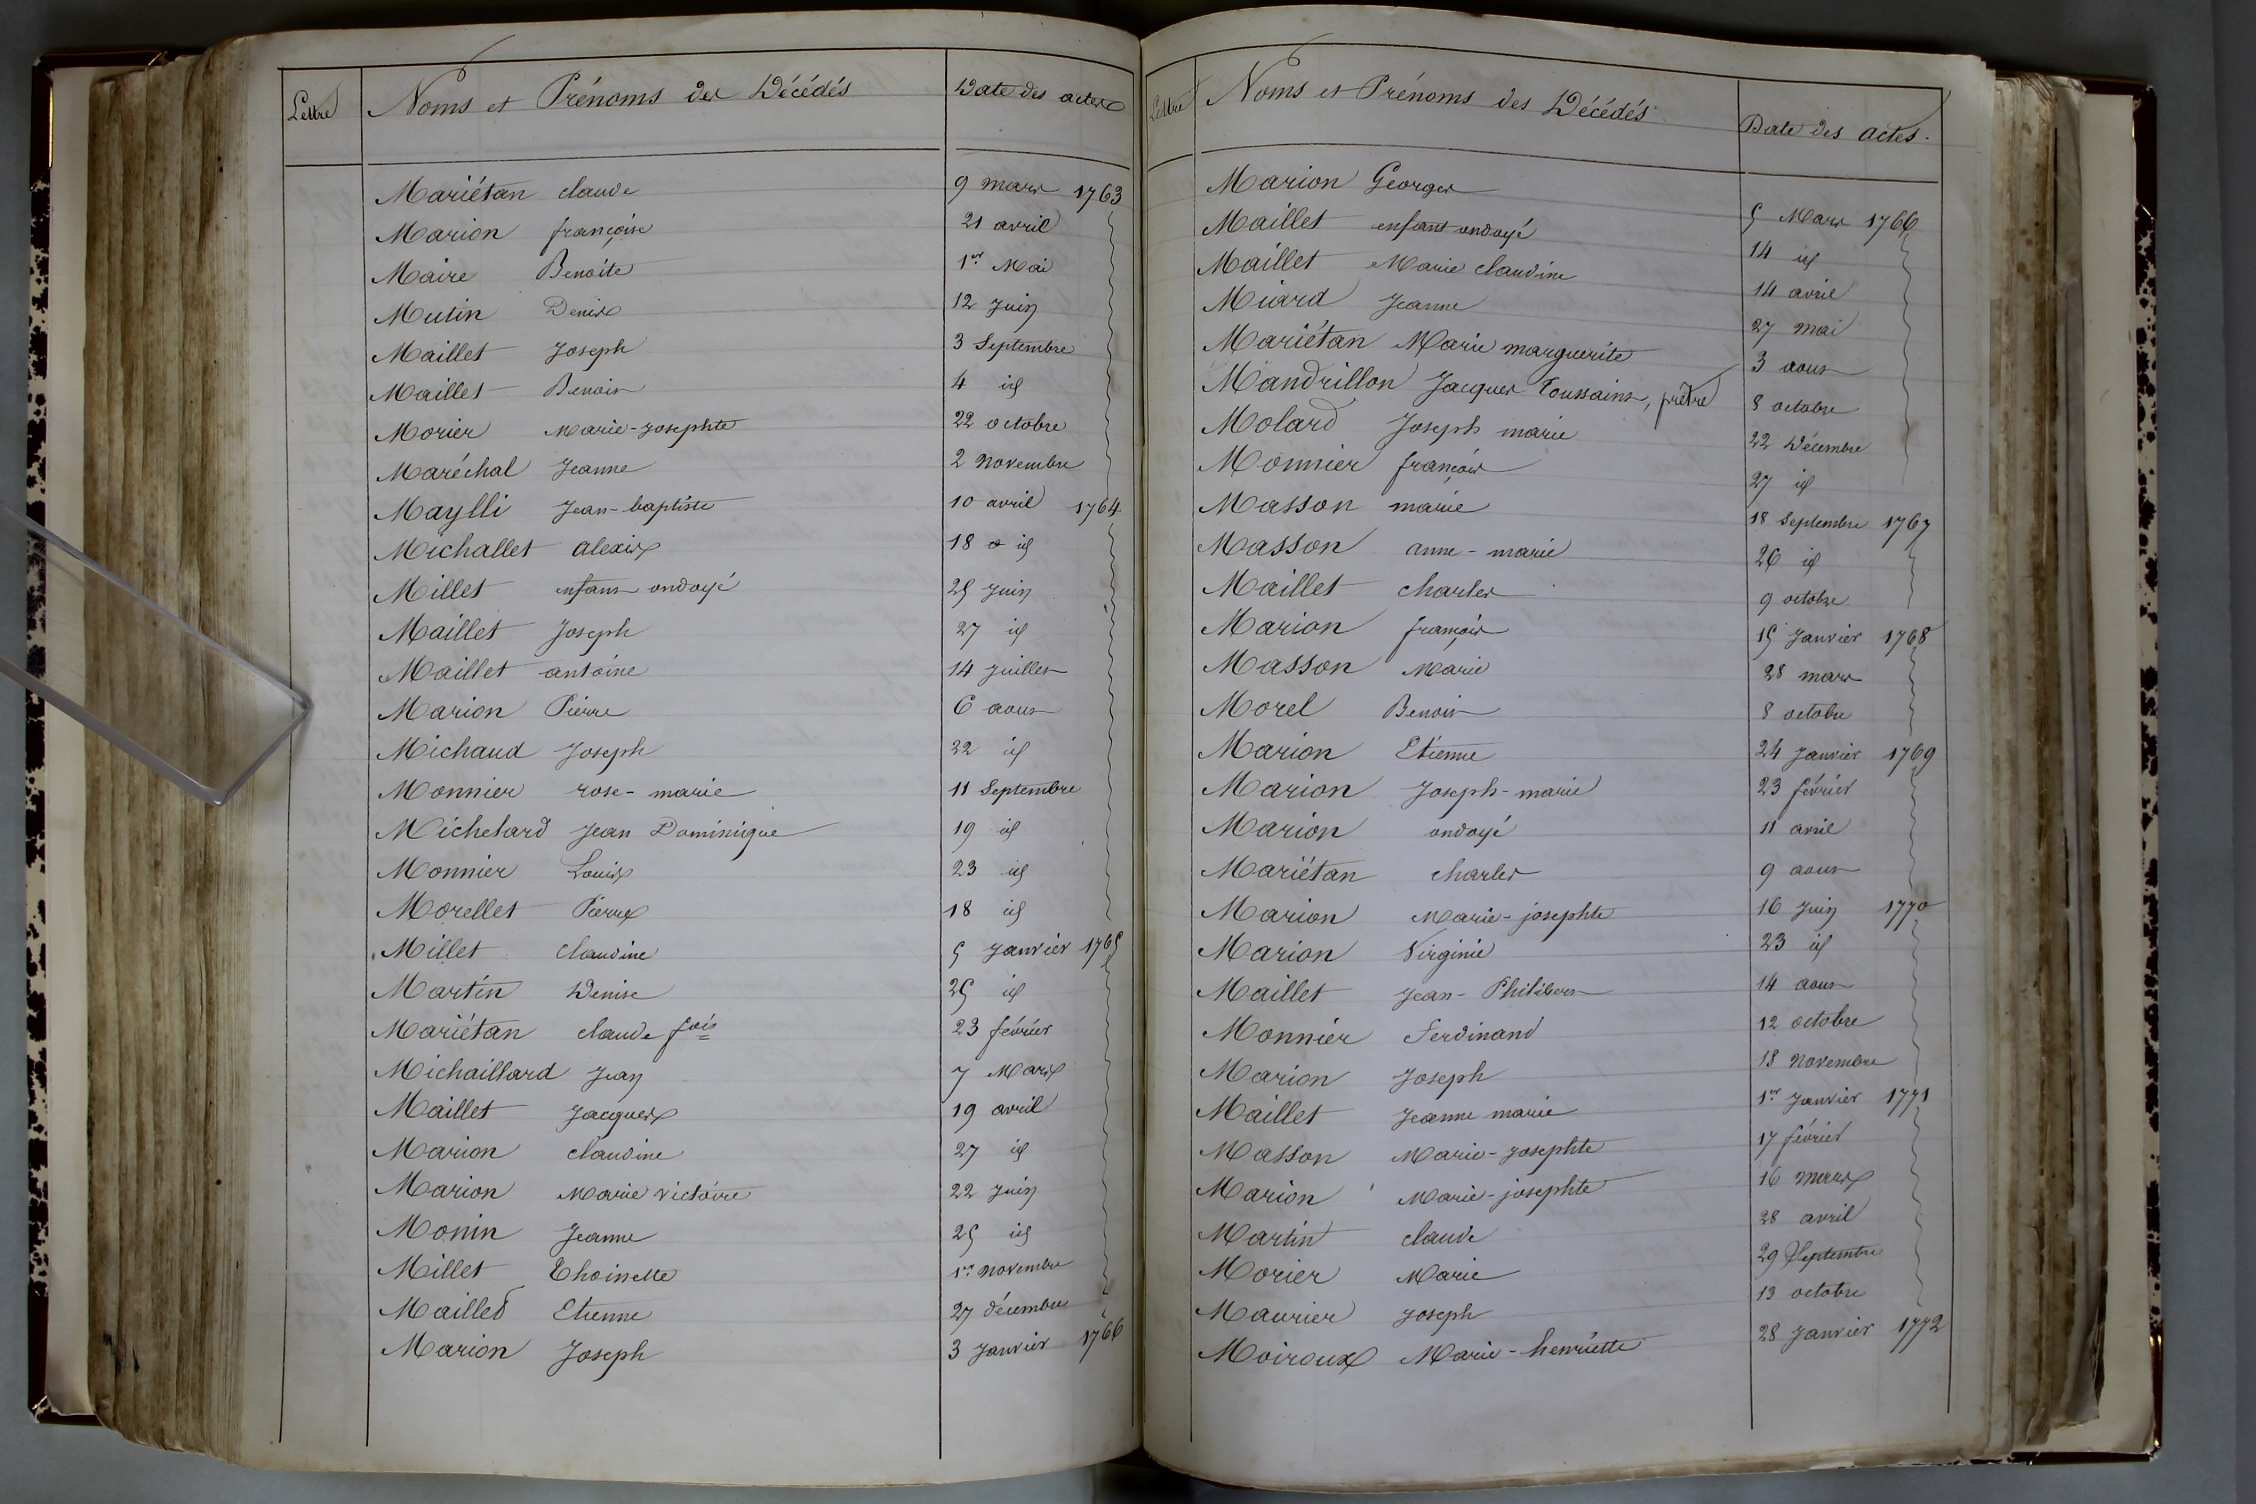 Lettre Noms et Prénoms des Décédés Date des actes
Mariétan claude 9 mars 1763
Marion françoise 21 avril
Maire Benoite 1er Mai
Mutin Denis 12 Juin
Maillet Joseph 3 Septembre
Maillet Benoit 4 id
Morier Marie-Josephte 22 octobre
Maréchal Jeanne 2 novembre
Maylli Jean-baptiste 10 avril 1764
Michallet alexis 18 id
Millet enfant ondoyé 25 Juin
Maillet Joseph 27 id
Maillet antoine 14 Juillet
Marion Pierre 6 aout
Michaud Joseph 22 id
Monnier rose-marie 11 Septembre
Michelard Jean Dominique 19 id
Monnier Louis 23 id
Morellet Pierre 18 id
Millet claudine 5 Janvier 1765
Martin Denise 25 id
Mariétan claude fois 23 février
Michaillard Jean 7 Mars
Maillet Jacques 19 avril
Marion claudine 27 id
Marion Marie victoire 22 Juin
Monin Jeanne 25 id
Millet Thoinette 1er novembre
Mailled Etienne 27 décembre
Marion Joseph 3 Janvier 1766
Lettre Noms et Prénoms des Décédés Date des actes.
Marion Georges 5 Mars 1766
Maillet enfant ondoyé 14 id
Maillet Marie claudine 14 avril
Miard Jeanne 27 mai
Mariétan Marie marguerite 3 aout
Mandrillon Jacques Toussaint, prêtre 8 octobre
Molard Joseph marie 22 Décembre
Monnier françois 27 id
Masson marie 18 Septembre 1767
Masson anne-marie 26 id
Maillet charles 9 octobre
Marion françois 15 Janvier 1768
Masson Marie 28 mars
Morel Benoit 8 octobre
Marion Etienne 24 Janvier 1769
Marion Joseph-marie 23 février
Marion ondoyé 11 avril
Mariétan charles 9 aout
Marion Marie-josephte 16 Juin 1770
Marion Virginie 23 id
Maillet Jean-Philibert 14 aout
Monnier Ferdinand 12 octobre
Marion Joseph 18 novembre
Maillet Jeanne marie 1er Janvier 1771
Masson Marie-Josephte 17 février
Marion Marie-josephte 16 mars
Martin claude 28 avril
Morier Marie 29 Septembre
Maurier Joseph 13 octobre
Moiroux Marie-henriette 28 Janvier 1772